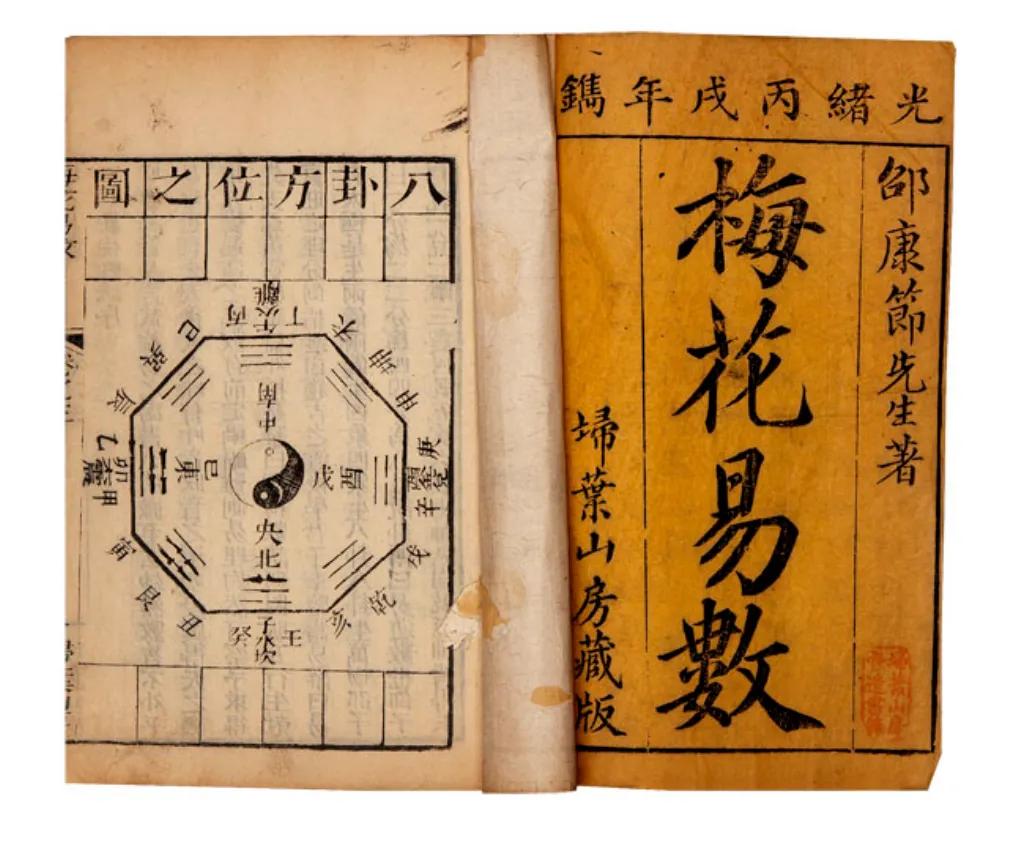 光緒丙戌年鐫
邵康節先生著
梅花易數
埽葉山房藏版
八卦方位之圖
離
丁火丙
午
未
坤
申
庚
兌
辛
戌
乾
亥
壬
子
癸
水
坎
丑
艮
寅
甲
卯
乙
辰
巽
巳
南
中
東
巳
戊
酉
央
北